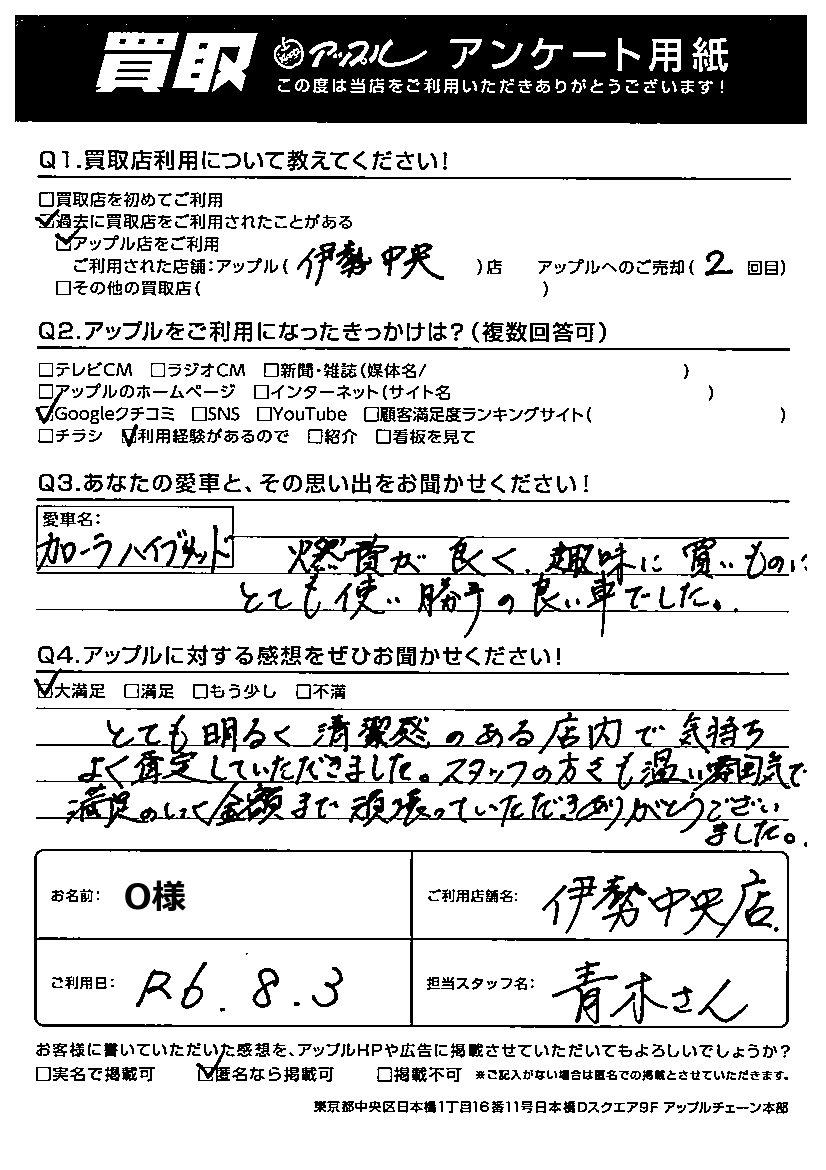 買取 アップル アンケート用紙
この度は当店をご利用いただきありがとうございます!
Q1.買取店利用について教えてください!
□買取店を初めてご利用
☑過去に買取店をご利用されたことがある
☑アップル店をご利用
ご利用された店舗:アップル(伊勢中央)店 アップルへのご売却(2回目)
□その他の買取店( )
Q2.アップルをご利用になったきっかけは?(複数回答可)
□テレビCM □ラジオCM □新聞・雑誌(媒体名/ )
□アップルのホームページ □インターネット(サイト名 )
☑Googleクチコミ □SNS □YouTube □顧客満足度ランキングサイト( )
□チラシ ☑利用経験があるので □紹介 □看板を見て
Q3.あなたの愛車と、その思い出をお聞かせください!
愛車名:
カローラハイブリッド 燃費が良く、趣味に買いものに
とても使い勝手の良い車でした。
Q4.アップルに対する感想をぜひお聞かせください!
☑大満足 □満足 □もう少し □不満
とても明るく清潔感のある店内で気持ち
よく査定していただきました。スタッフの方々も温い雰囲気で
満足のいく金額まで頑張っていただきありがとうござい
ました。
お名前: O様 ご利用店舗名: 伊勢中央店.
ご利用日: R6.8.3 担当スタッフ名: 青木さん
お客様に書いていただいた感想を、アップルHPや広告に掲載させていただいてもよろしいでしょうか?
□実名で掲載可 ☑匿名なら掲載可 □掲載不可 ※ご記入がない場合は匿名での掲載とさせていただきます。
東京都中央区日本橋1丁目16番11号日本橋Dスクエア9F アップルチェーン本部